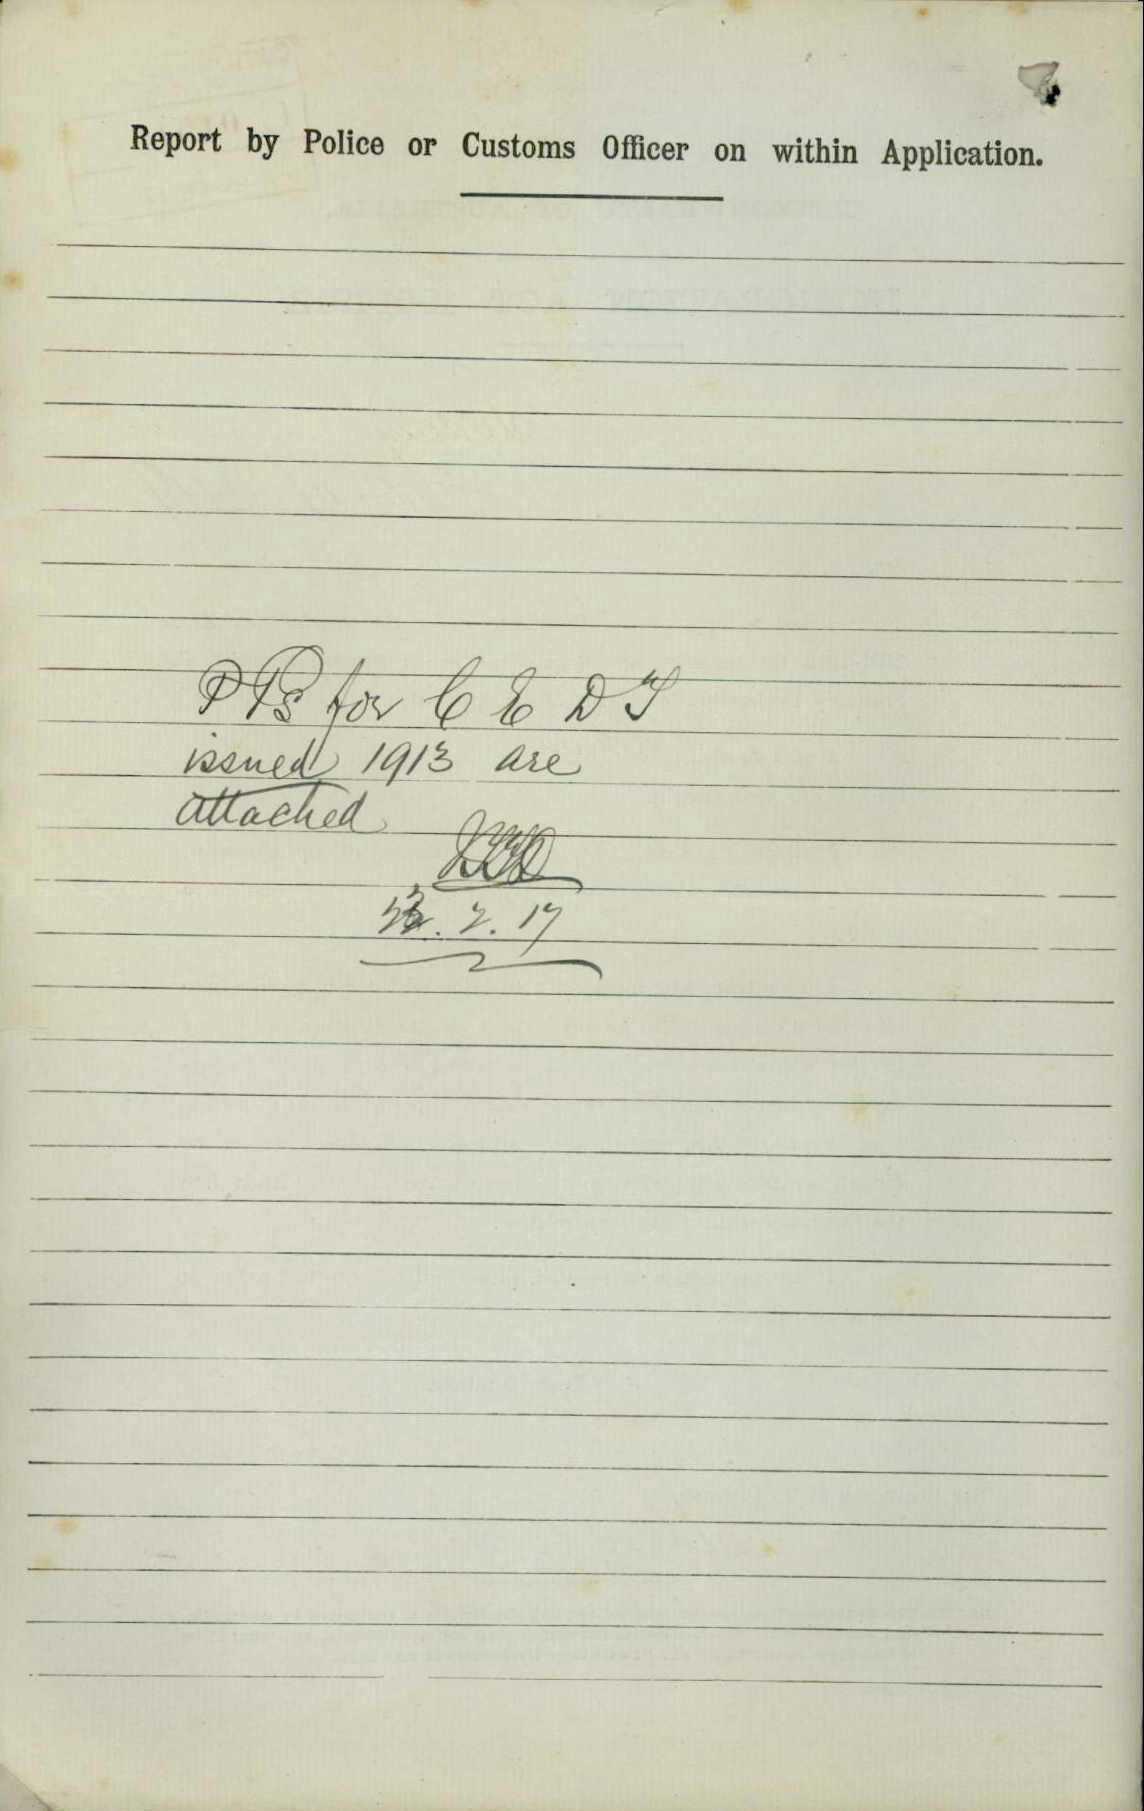 Report by Police or Customs Officer on within Application.
P Ps for C E D T
issued 1913 are
attached
. 2. 17